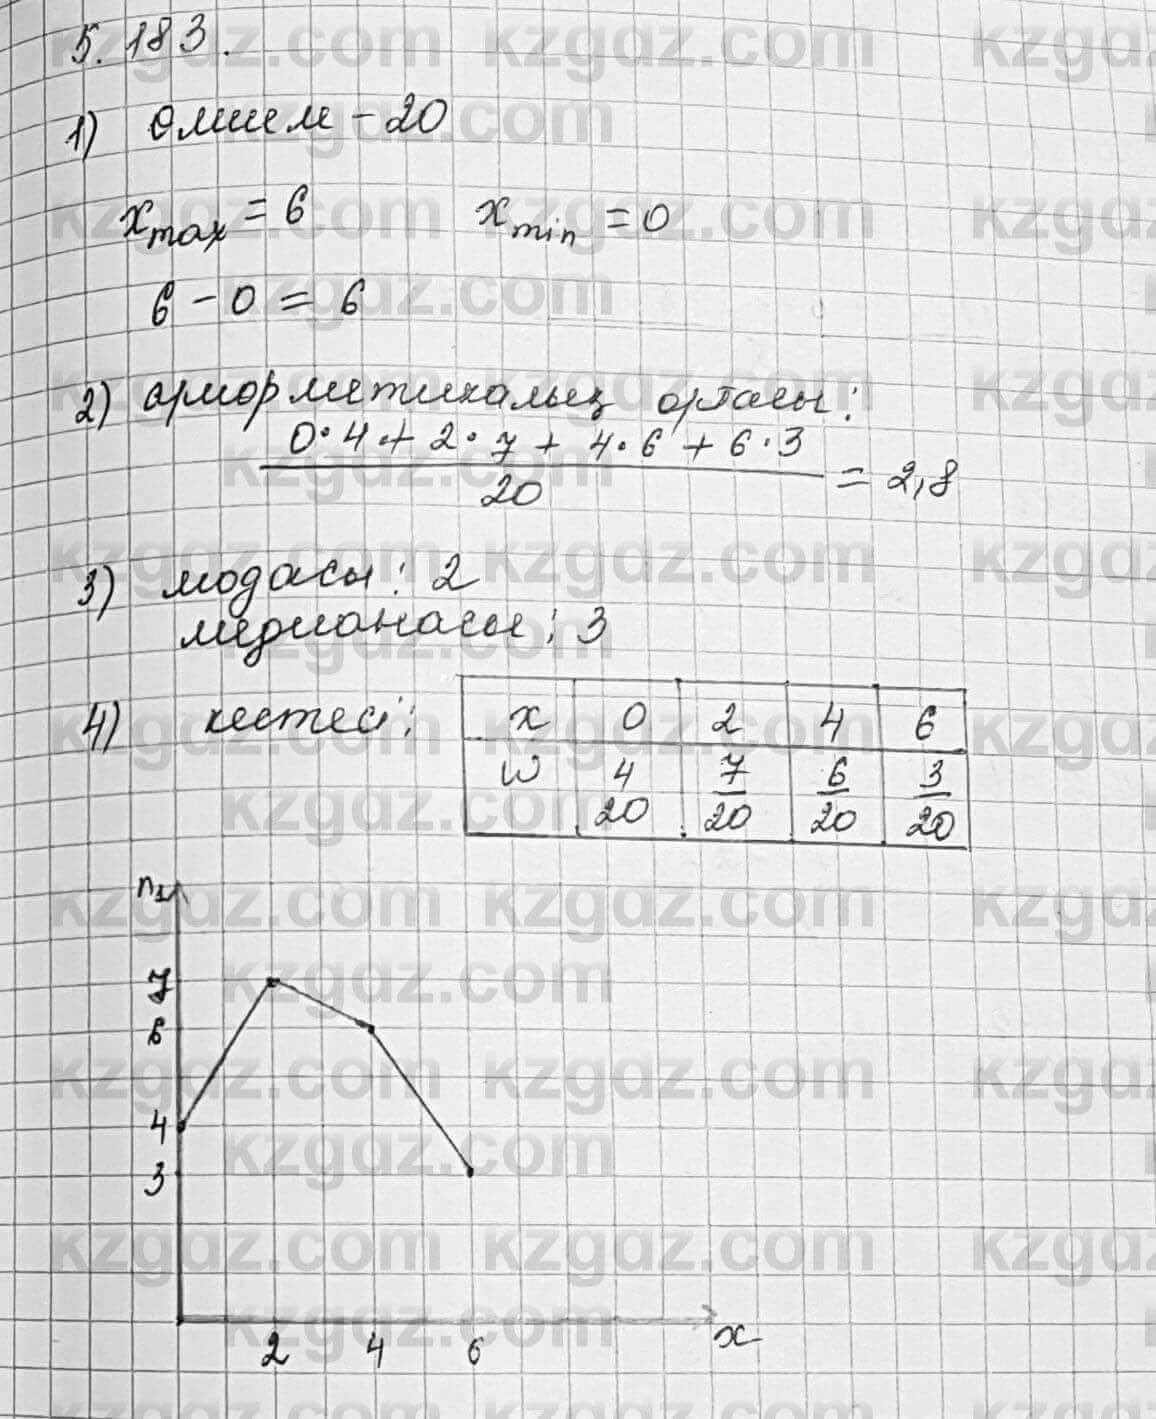 5.183.
1) өлшем - 20
x max = 6 x min = 0
6 - 0 = 6
2) арифметикалық ортасы:
0·4 + 2·7 + 4·6 + 6·3
= 2,8
20
3) модасы: 2
медианасы: 3
4) кестесі:
x 0 2 4 6
W 4/20 7/20 6/20 3/20
7
6
4
3
2 4 6 x
kzgdz.com